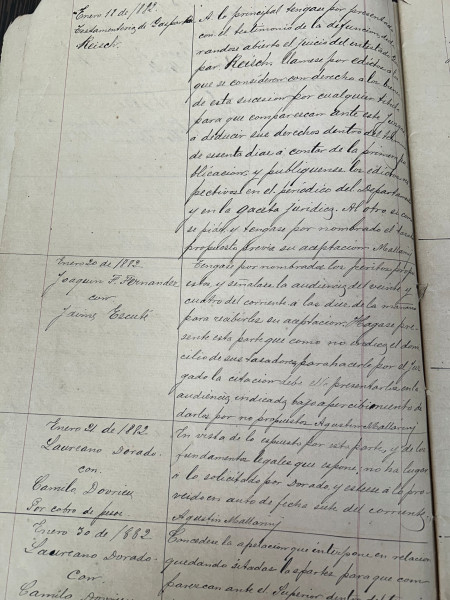 Enero 18 de 1882.
Testamenteria de Gaspar
Reisch.
A lo principal tengase por presentado
con el testimonio de la defuncion, decla
randose abierto el juicio del intestado Gas
par Reisch. Llamese por edictos a los
que se consideren con derecho a los bienes
de esta sucesion por cualquier titulo
para que comparescan ante este Juzgado
a deducir sus derechos dentro del termino
de sesenta dias a contar de la primera pu
blicacion, y publiquense los edictos res
pectivos en el periodico del Departamento
y en la gaceta juridica. Al otro si, como
se pide y tengase por nombrado el
propuesto previa su aceptacion. Mallarin
Enero 20 de 1882.
Joaquin F. Fernandez
con
Jaime Escuti
Tengase por nombrados los peritos prop
estos y señalase la audiencia del veinte y
cuatro del corriente a las doce de la mañana
para recibirles su aceptacion. Hagase pre
sente esta parte que como no indica el domi
cilio de sus tasadores para hacerlo por el Juz
gado la citacion debe el presentarlos en la
audiencia indicada bajo apercibimiento de
darlos por no propuestos Agustin Mallarin
Enero 21 de 1882
Laureano Dorado.
con.
Camilo
Por cobro de pesos.
En vista de lo espuesto por esta parte, y de los
fundamentos legales que espone, no ha lugar
a lo solicitado por Dorado, y estese a lo pro
veido en auto de fecha siete del corriente.
Agustin Mallarin
Enero 30 de 1882
Laureano Dorado.
Con
Camilo
Concedese la apelacion que interpone en relacion
quedando citadas las partes para que com
parescan ante el Superior dentro del